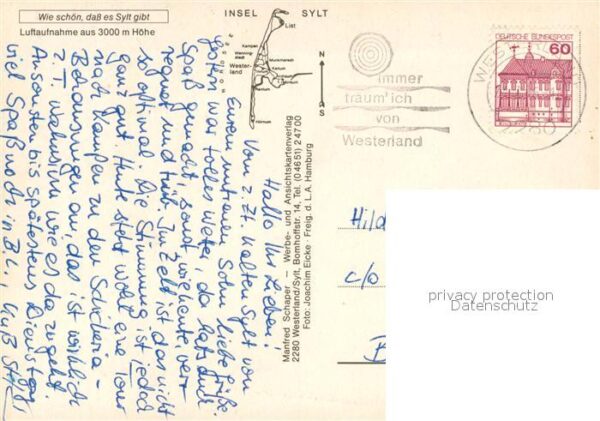 Wie schön, daß es Sylt gibt
Luftaufnahme aus 3000 m Höhe
INSEL SYLT
List
Kampen
Westerland
Keitum
Hörnum
N
S
immer
träum' ich
von
Westerland
DEUTSCHE BUNDESPOST
60
Manfred Schaper — Werbe- und Ansichtskartenverlag
2280 Westerland/Sylt, Bomhoffstr. 14, Tel. (04651) 24700
Foto: Joachim Eicke · Freig. d. L.A. Hamburg
Hallo Ihr Lieben!
Vom z.Zt. kalten Sylt von
Eurem untreuen Sohn liebe Grüße.
Gestern war tolles Wetter, da hat's
Spaß gemacht, sonst
regnet und trüb. Im Zelt ist das nicht
so optimal. Die Stimmung ist jedoch
ganz gut. Heute steht wohl eine Tour
nach Kampen zu den Schickeria-
Behausungen an, das ist wirklich
z.T. Wahnsinn wie es da zugeht.
Ansonsten bis spätestens Dienstag,
viel Spaß noch in
Hild
c/o
privacy protection
Datenschutz